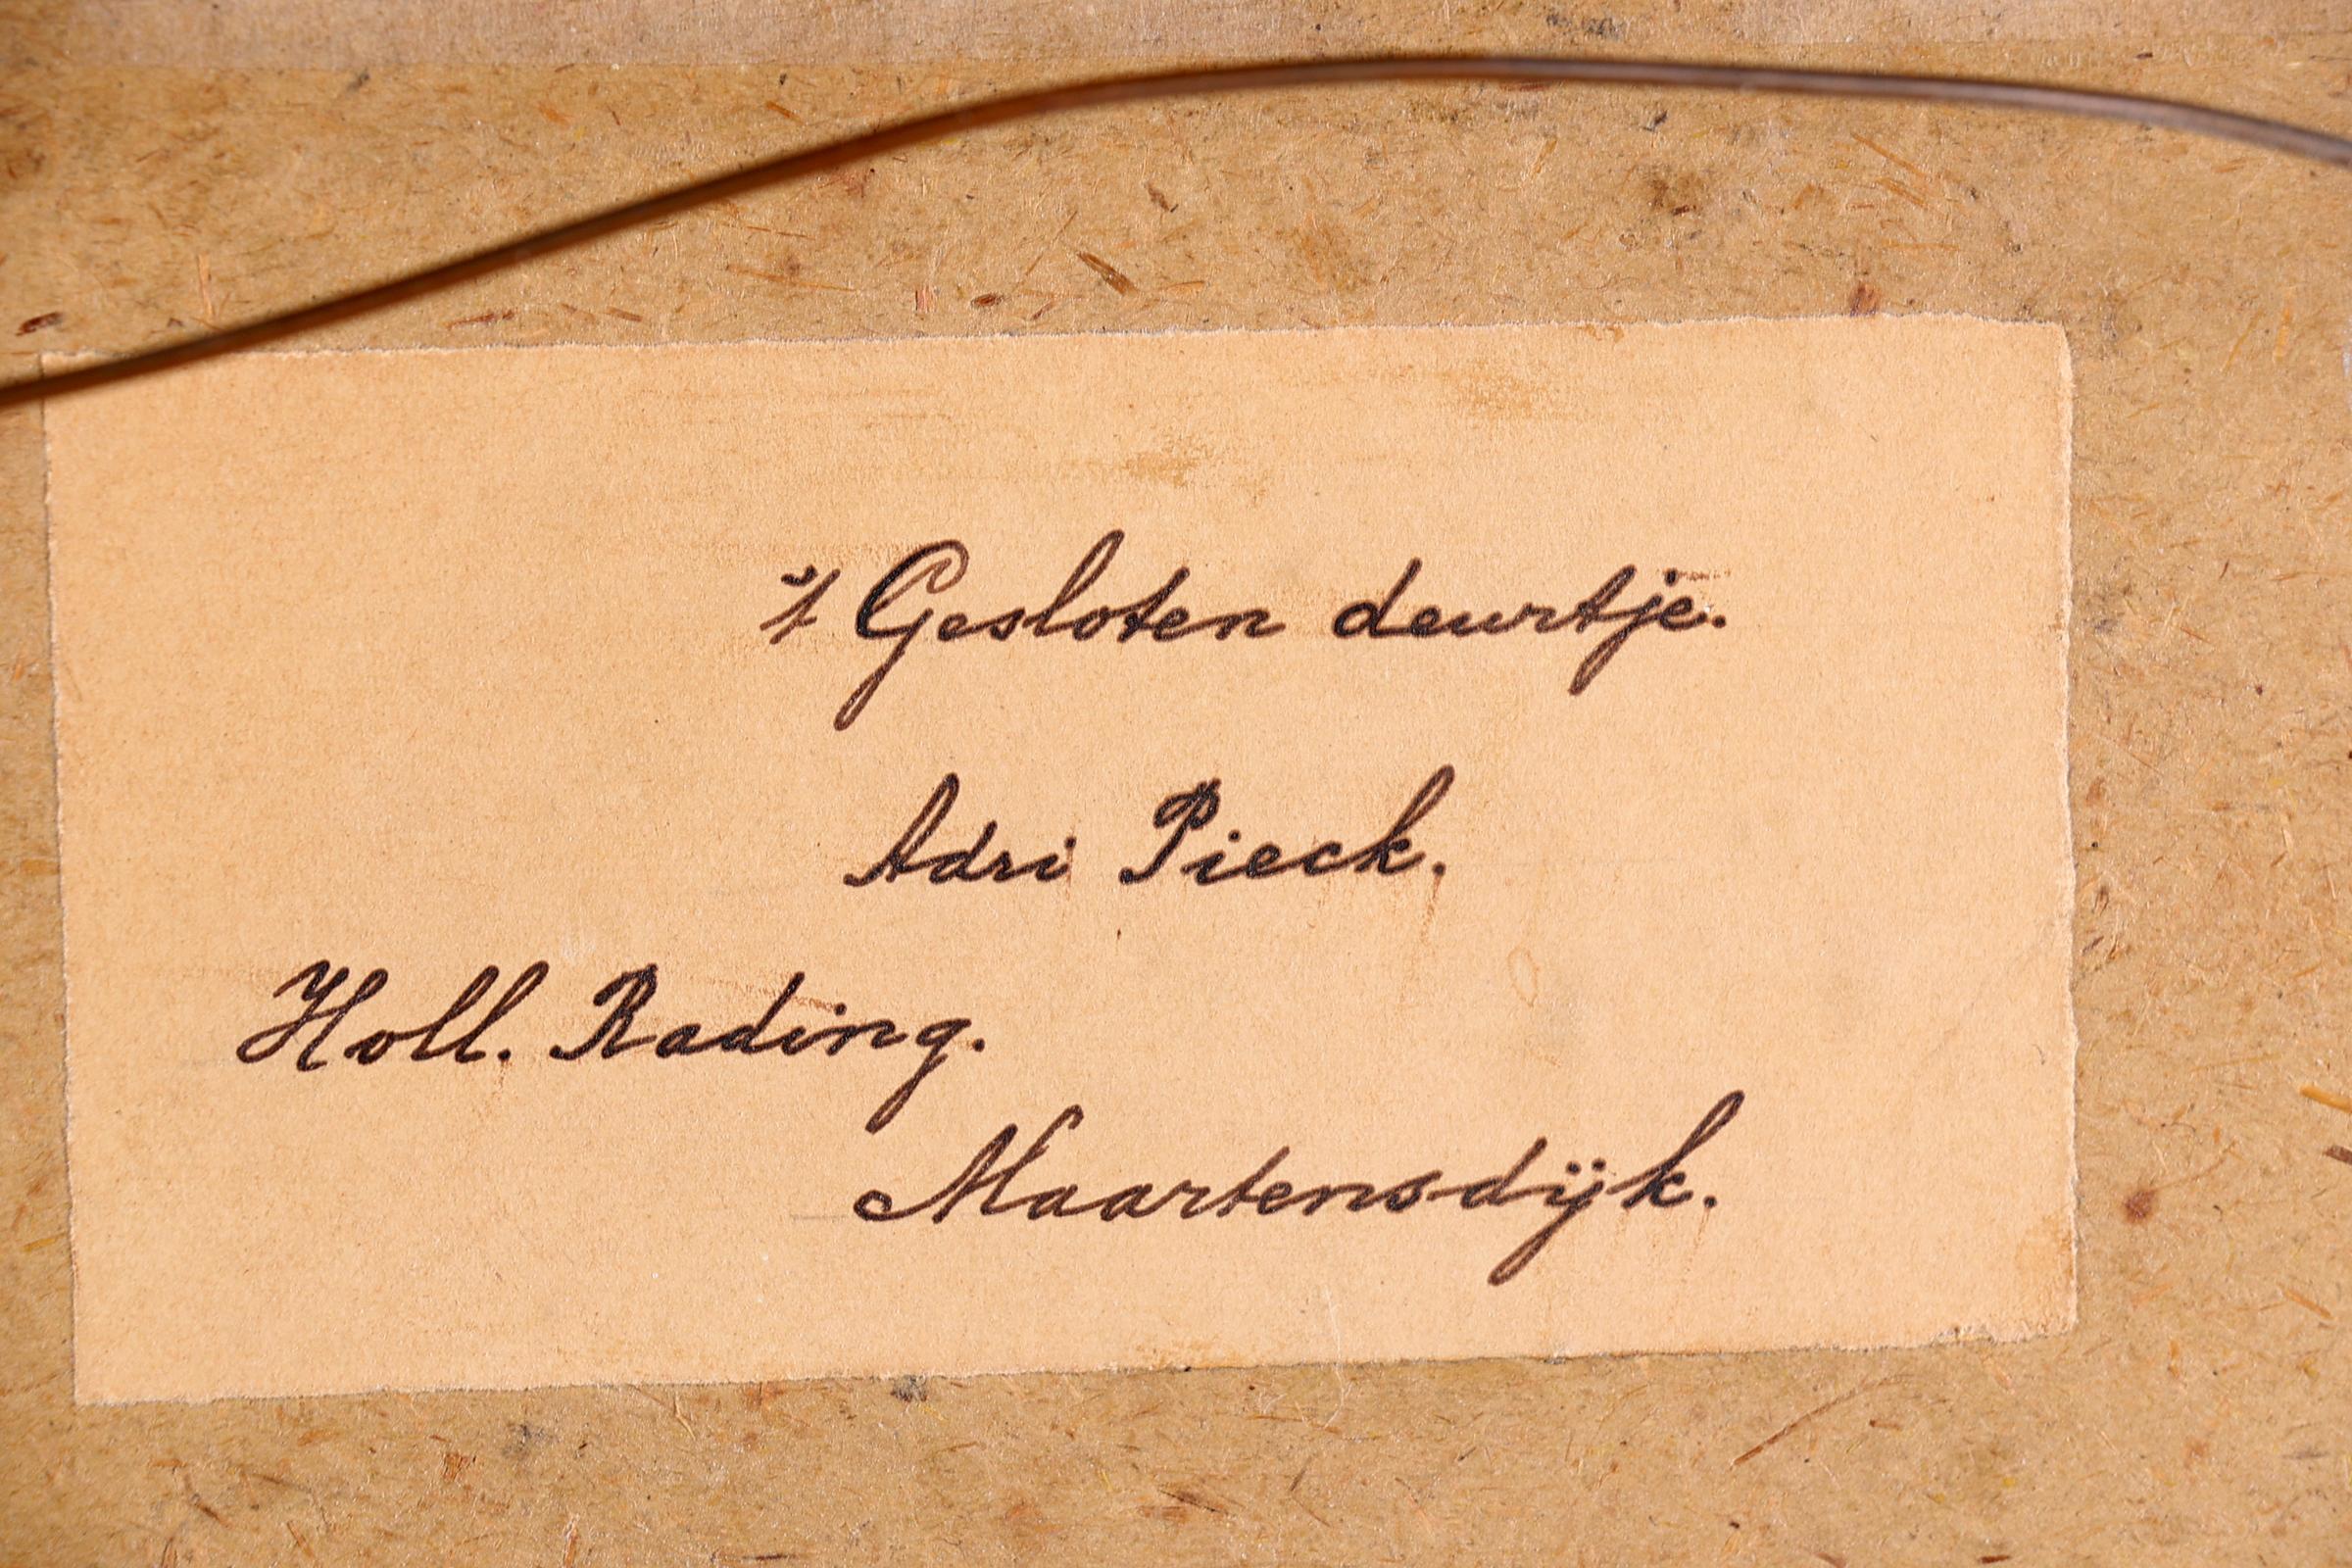 't Gesloten deurtje.
Adri Pieck.
Holl. Rading.
Maartensdijk.